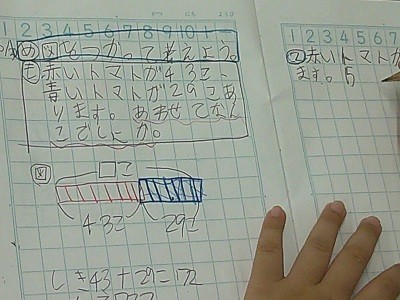 1 2 3 4 5 6 7 8 9 10 1
め 図をつかって考えよう。
も 赤いトマトが43こ、
青いトマトが29こあ
ります。あわせてなん
こでしょうか。
図
□こ
43こ 29こ
しき43+29=72
1 2 3 4 5 6 7
赤いトマトが
ます。5